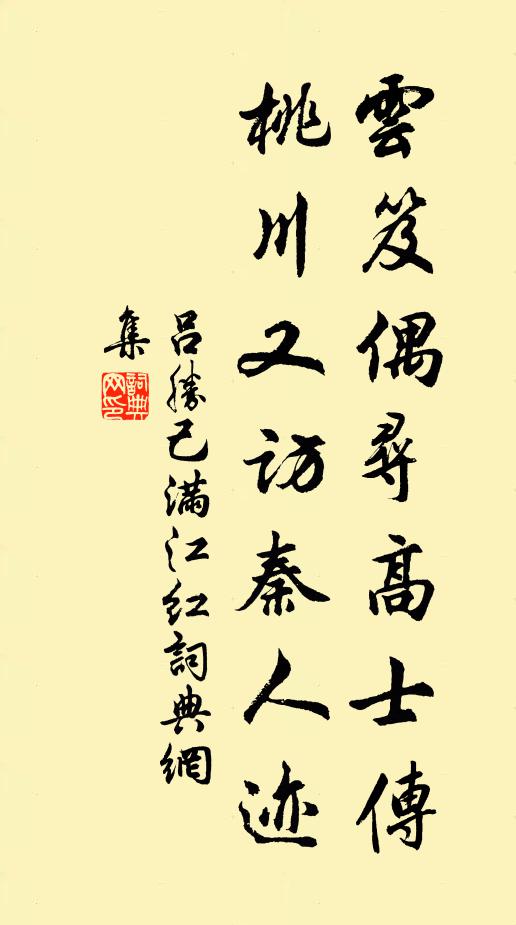 雲笈偶尋高士傳
桃川又訪秦人迹
呂勝己滿江紅詞典網
集
詞典
网印